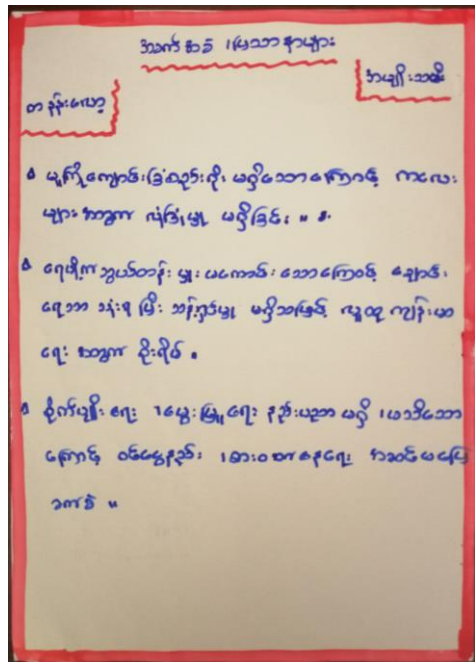 အခက်အခဲ ပြဿနာများ
အမျိုးသမီး
တနန်းလော့
မူကြိုကျောင်းခြံစည်းရိုး မရှိသောကြောင့် ကလေး
များအတွက် လုံခြုံမှု မရှိခြင်း။
ရေပိုက်သွယ်တန်းမှု မကောင်းသောကြောင့် ချောင်း
ရေသာ သုံးရပြီး သန့်ရှင်းမှု မရှိသဖြင့် လူထုကျန်းမာ
ရေးအတွက် စိုးရိမ်
စိုက်ပျိုးရေး မွေးမြူရေး နည်းပညာ မရှိ မသိသော
ကြောင့် ဝင်ငွေနည်း စားဝတ်နေရေး အဆင်မပြေ
ခက်ခဲ ။